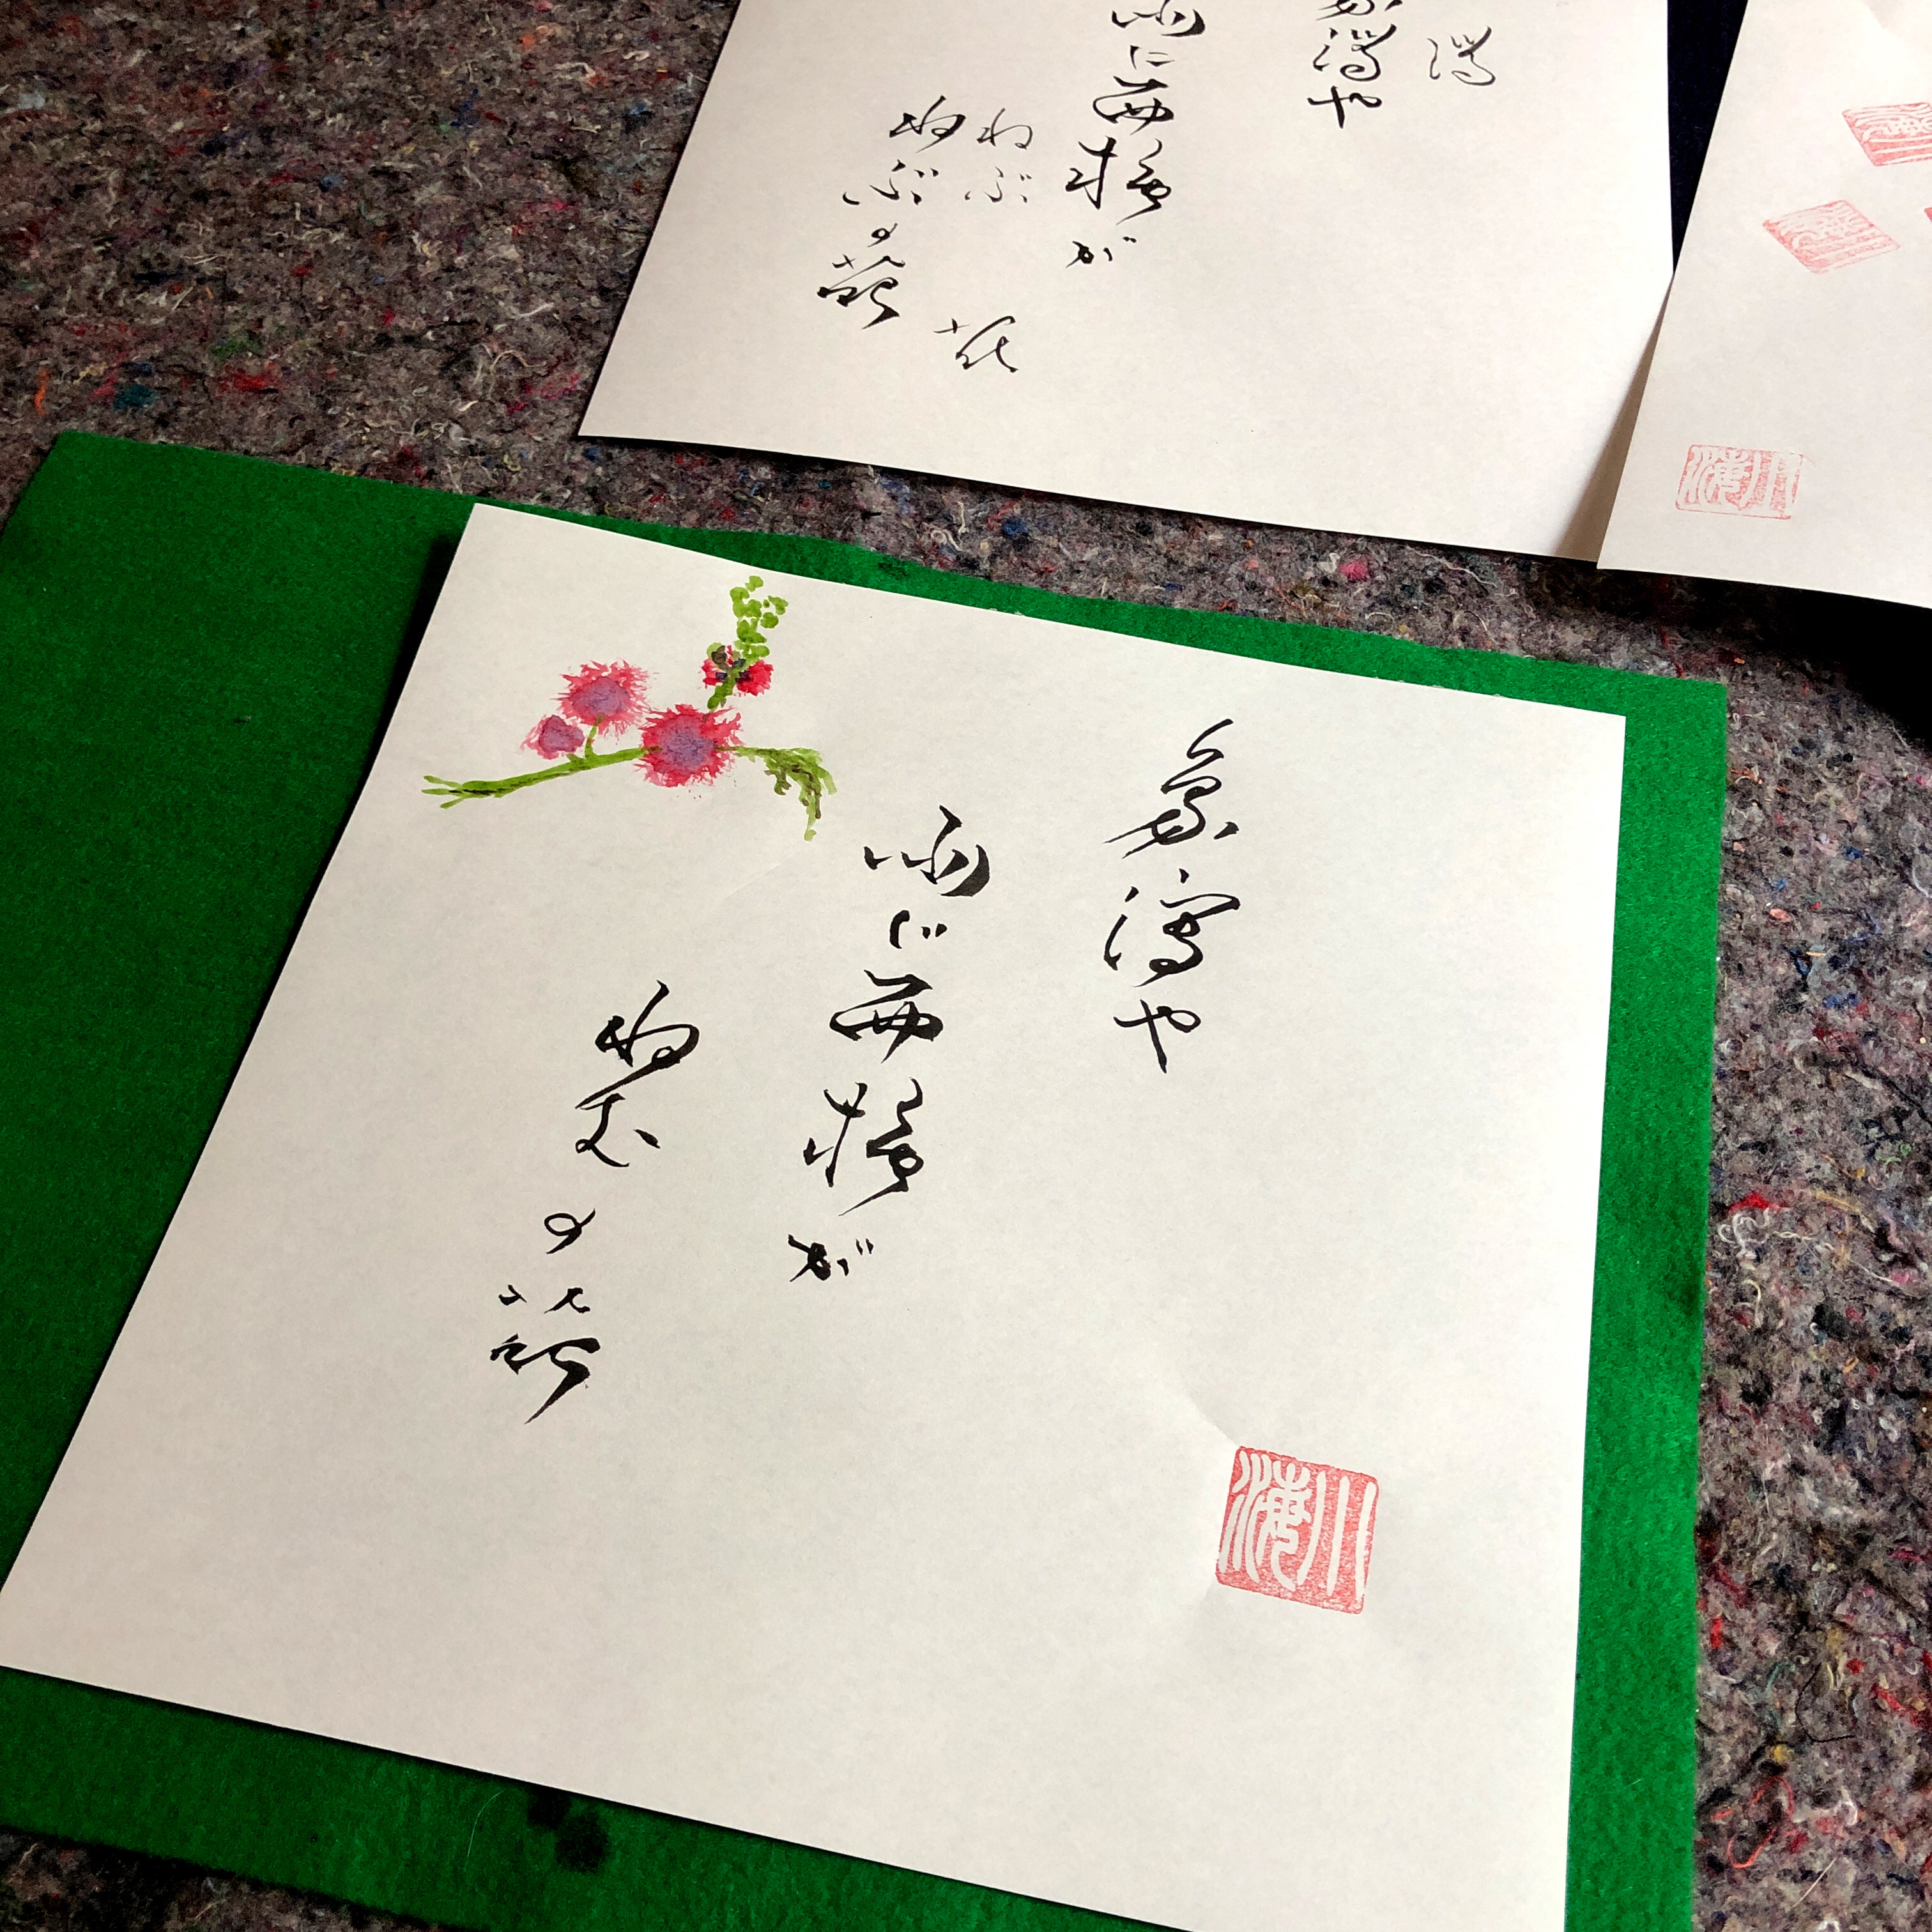 潟
象潟や
雨に西施が
ねぶ
花
ねぶの花
象潟や
雨に西施が
ねむの花
川海
川海